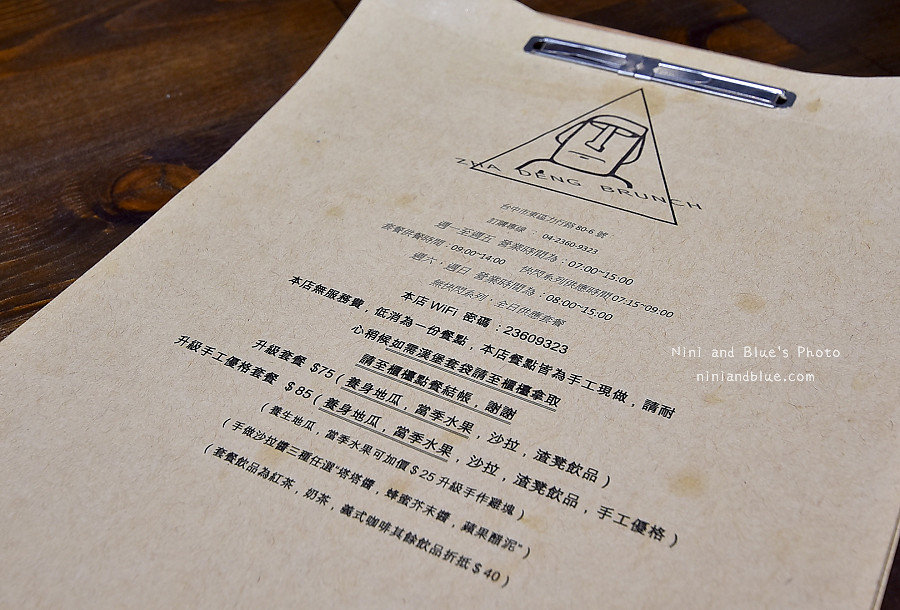 ZHA DENG BRUNCH
台中市東區力行路 80-6 號
訂購專線： 04-2360-9323
週一至週五 營業時間為：07:00~15:00
套餐供餐時間：09:00~14:00 快閃系列供應時間 07:15~09:00
週六，週日 營業時間為：08:00~15:00
無快閃系列，全日供應套餐
本店 WiFi 密碼：23609323
本店無服務費，低消為一份餐點，本店餐點皆為手工現做，請耐
心稍候如需漢堡套袋請至櫃檯拿取
請至櫃檯點餐結帳，謝謝
升級套餐 $75 ( 養身地瓜，當季水果，沙拉，渣凳飲品 )
升級手工優格套餐 $85 ( 養身地瓜，當季水果，沙拉，渣凳飲品，手工優格 )
( 養生地瓜，當季水果可加價 $25 升級手作雞塊 )
( 手做沙拉醬三種任選"塔塔醬，蜂蜜芥末醬，蘋果醋泥" )
( 套餐飲品為紅茶，奶茶，義式咖啡其餘飲品折抵 $40 )
Nini and Blue's Photo
niniandblue.com